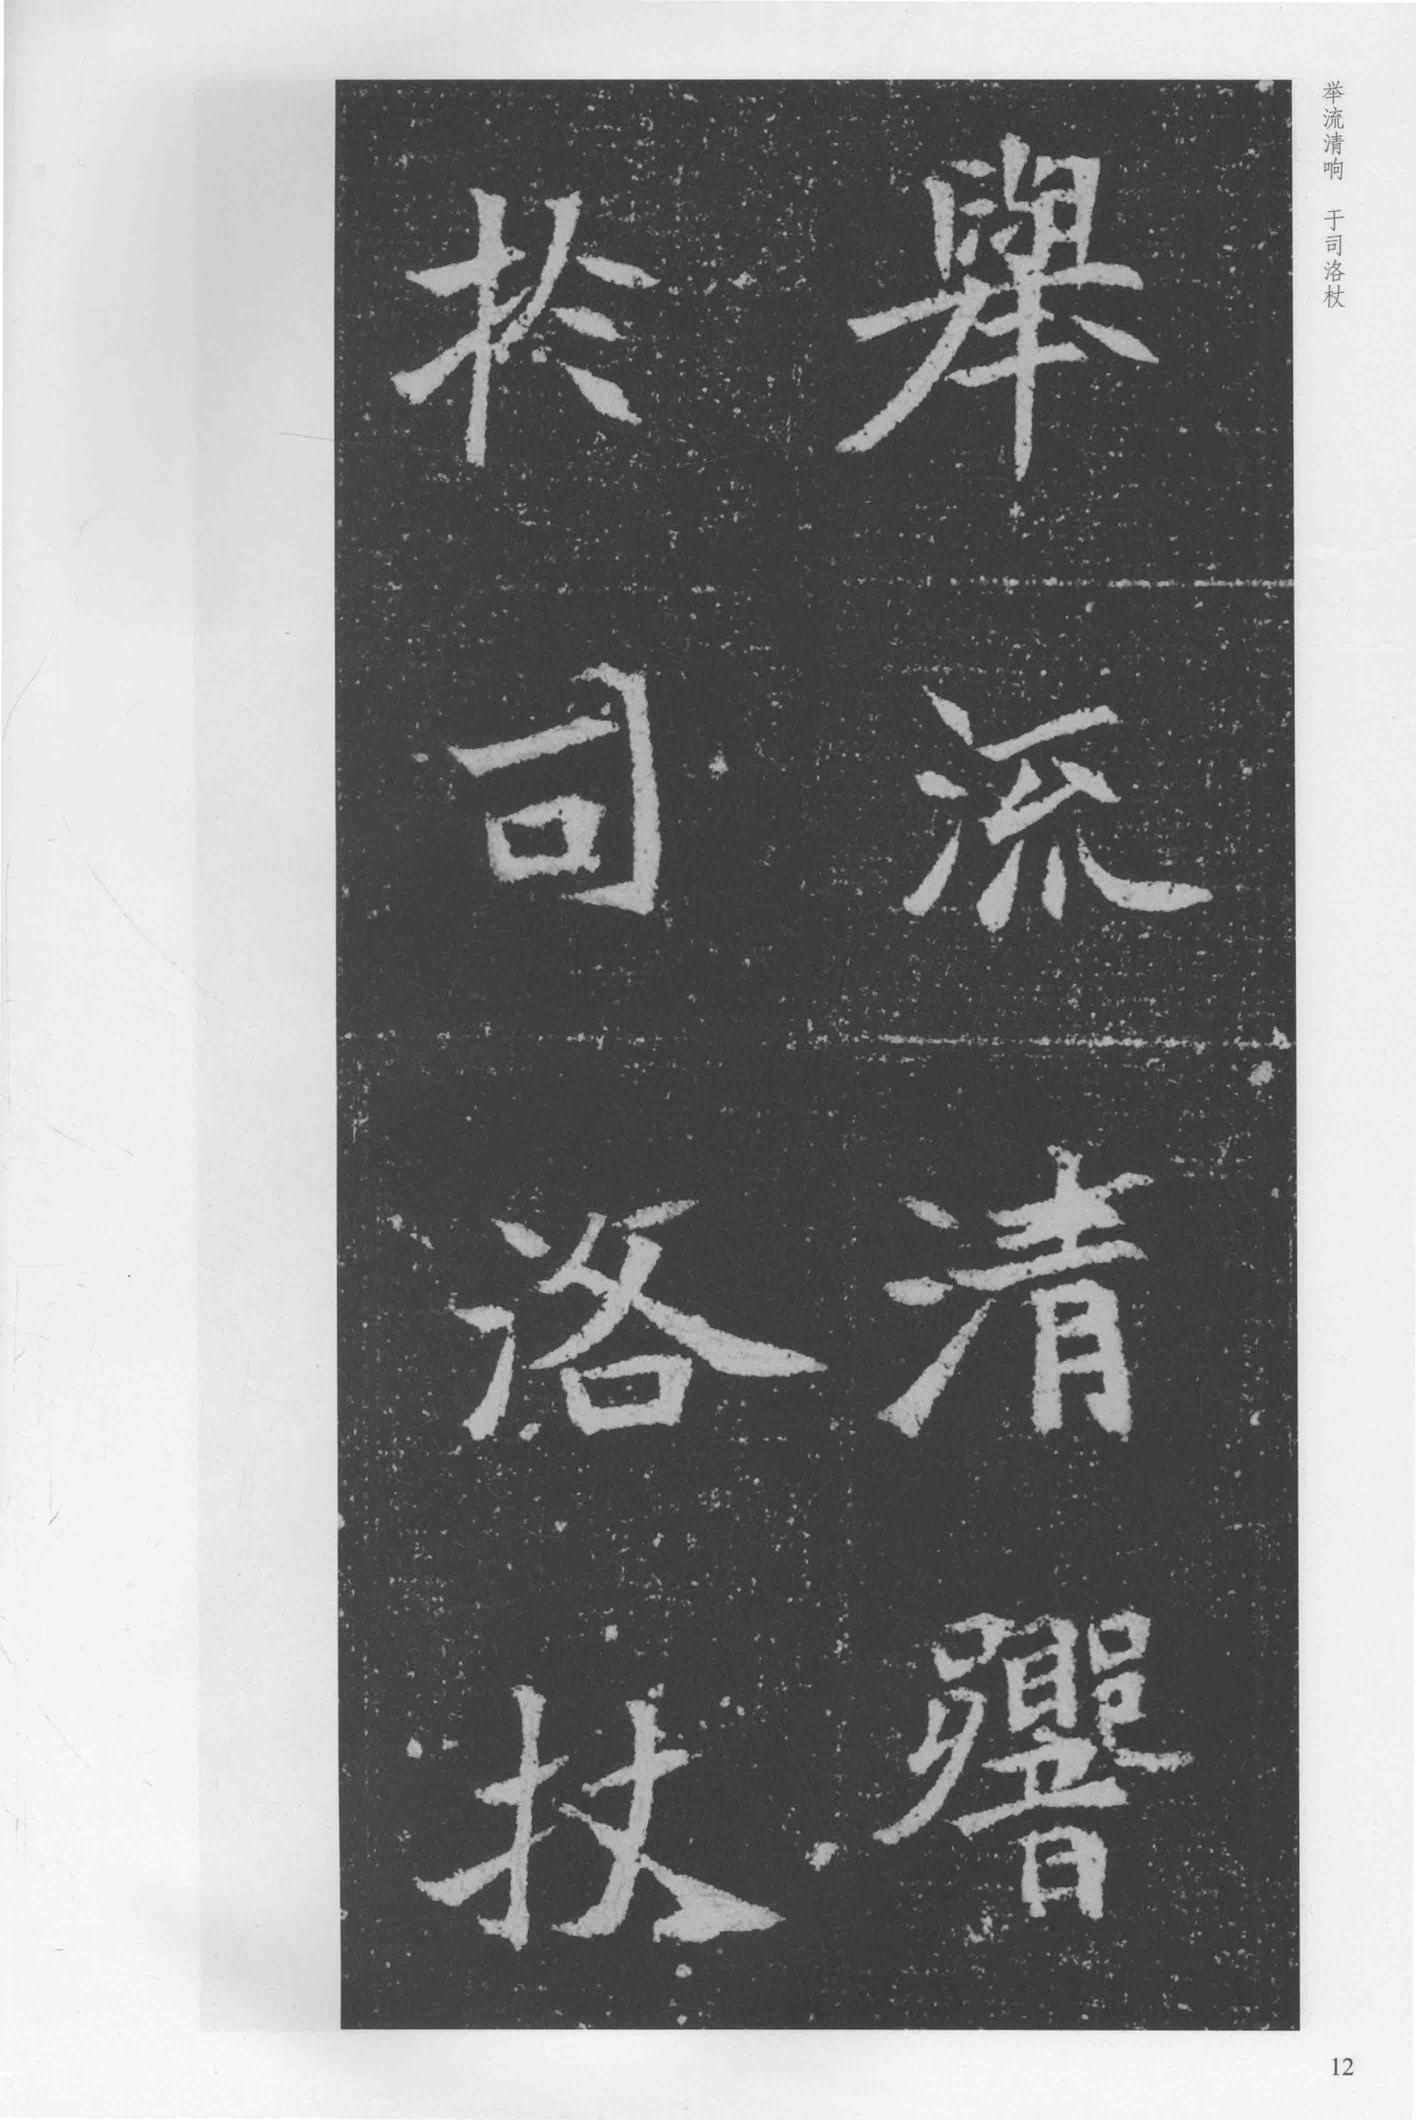 举流清响　于司洛杖
舉流清響
於司洛杖
12